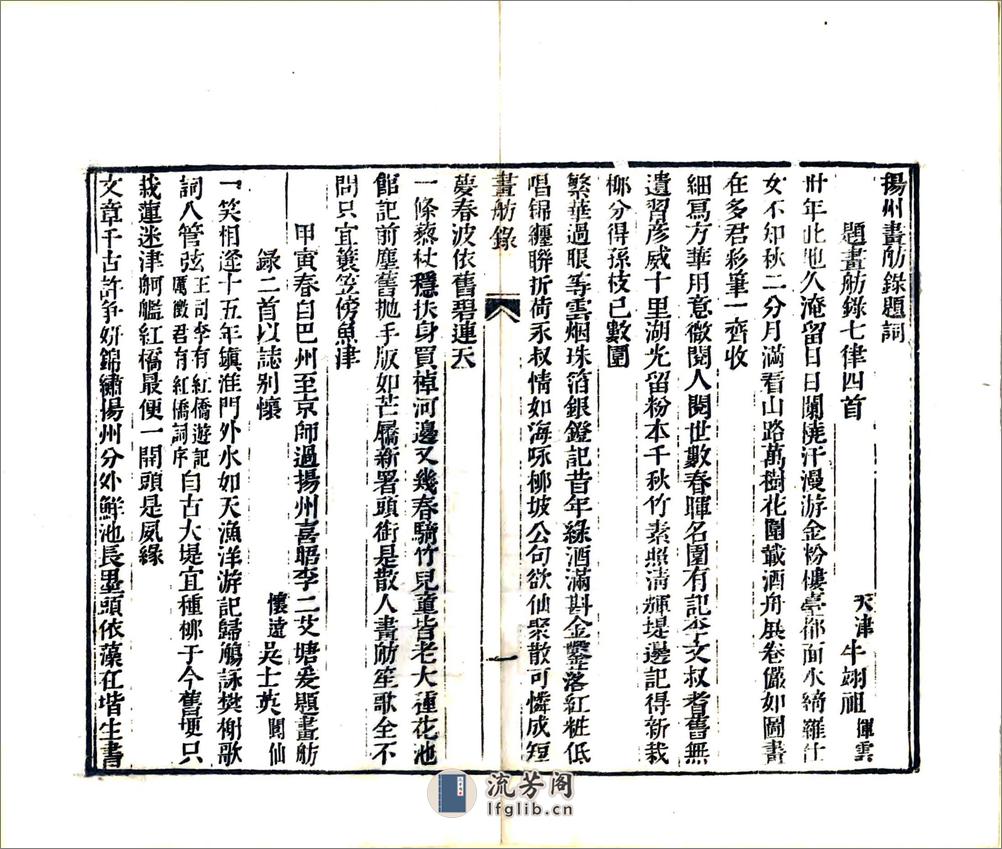 揚州畫舫錄題詞
題畫舫錄七律四首
天津牛翊祖渾雲
卅年此地久淹留日日闌橈汗漫游金粉樓臺都面水綺羅仕
女不知秋二分月滿看山路萬樹花圍載酒舟展卷儼如圖畫
在多君彩筆一齊收
細寫方華用意微閱人閱世數春暉名園有記李文叔耆舊無
遺習彥威十里湖光留粉本千秋竹素照淸輝堤邊記得新栽
柳分得孫枝已數圍
繁華過眼等雲烟珠箔銀鐙記昔年綠酒滿斟金鑿落紅粧低
唱錦纏聯折荷永叔情如海啄柳坡公句欲仙聚散可憐成短
畫舫錄
一
夢春波依舊碧連天
一條藜杖穩扶身買棹河邊又幾春騎竹兒童皆老大蓮花池
館記前塵舊拋手版如芒屩新署頭銜是散人畫舫笙歌全不
問只宜簑笠傍魚津
甲寅春自巴州至京師過揚州喜晤李二艾塘爰題畫舫
錄二首以誌别懷
懷遠吳士英闐仙
一笑相逢十五年鎭淮門外水如天漁洋游記歸觴詠樊榭歌
詞入管弦王司李有紅橋遊記厲徵君有紅橋詞序自古大堤宜種柳于今舊埂只
栽蓮迷津舸艦紅橋最便一開頭是夙緣
文章千古許爭姸錦繡揚州分外鮮池長墨頭依藻在堦生書
流芳阁
lfglib.cn